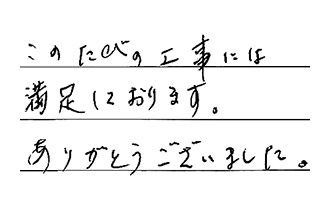 このたびの工事には
満足しております。
ありがとうございました。